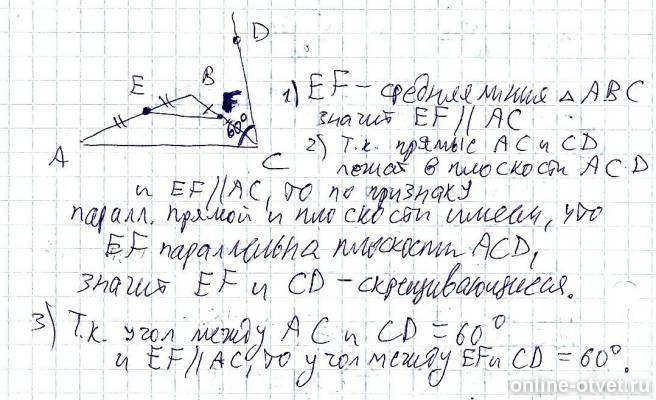 D
E
B
F
60°
A
C
1) EF – средняя линия △ ABC
значит EF || AC
2) Т.к. прямые AC и CD
лежат в плоскости ACD
и EF || AC, то по признаку
паралл. прямой и плоскости имеем, что
EF параллельна плоскости ACD,
значит EF и CD – скрещивающиеся.
3) Т.к. угол между AC и CD = 60°
и EF || AC, то угол между EF и CD = 60°.
online-otvet.ru